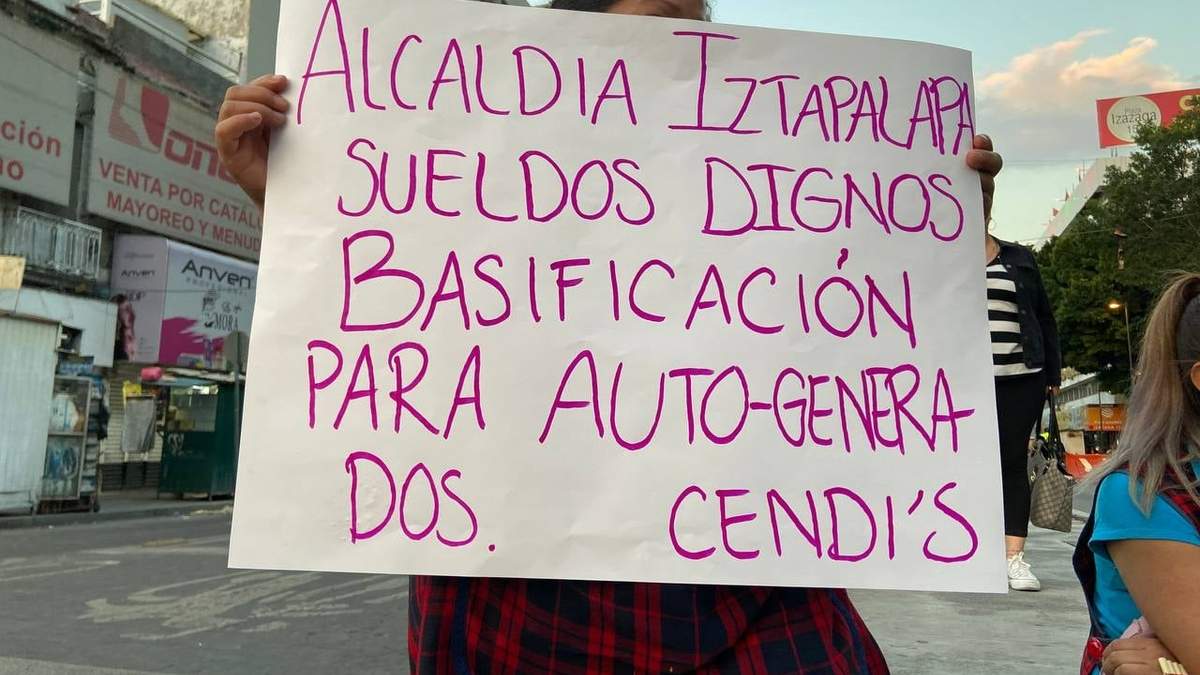 ALCALDIA IZTAPALAPA
SUELDOS DIGNOS
BASIFICACIÓN
PARA AUTO-GENERA
DOS. CENDI'S
VENTA POR CATÁL
MAYOREO Y MENUD
ción
Anven
Anven
MORA
Plaza
Izazaga